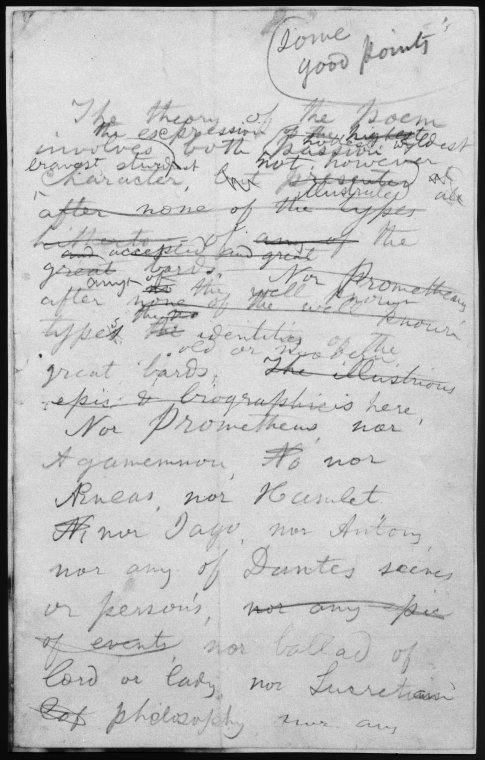 Some
good points
The theory of the poem
the expression of the highest
involves both passion wildest
bravest sturdiest not however
character, but presented
illustrated
after none of the types
of any of the
and accepted and great
great bards. Nor Prometheus
any of
after none of the well known
types the identities of the
old or modern,
great bards, The illustrious
epic & biographic is here,
Nor Prometheus, nor
Agamemnon, No nor
Æneas, nor Hamlet
N, nor Iago, nor Antony,
nor any of Dantes scenes
or persons, nor any epic
of events, nor ballad of
lord or lady, nor Lucretian
philosophy nor any